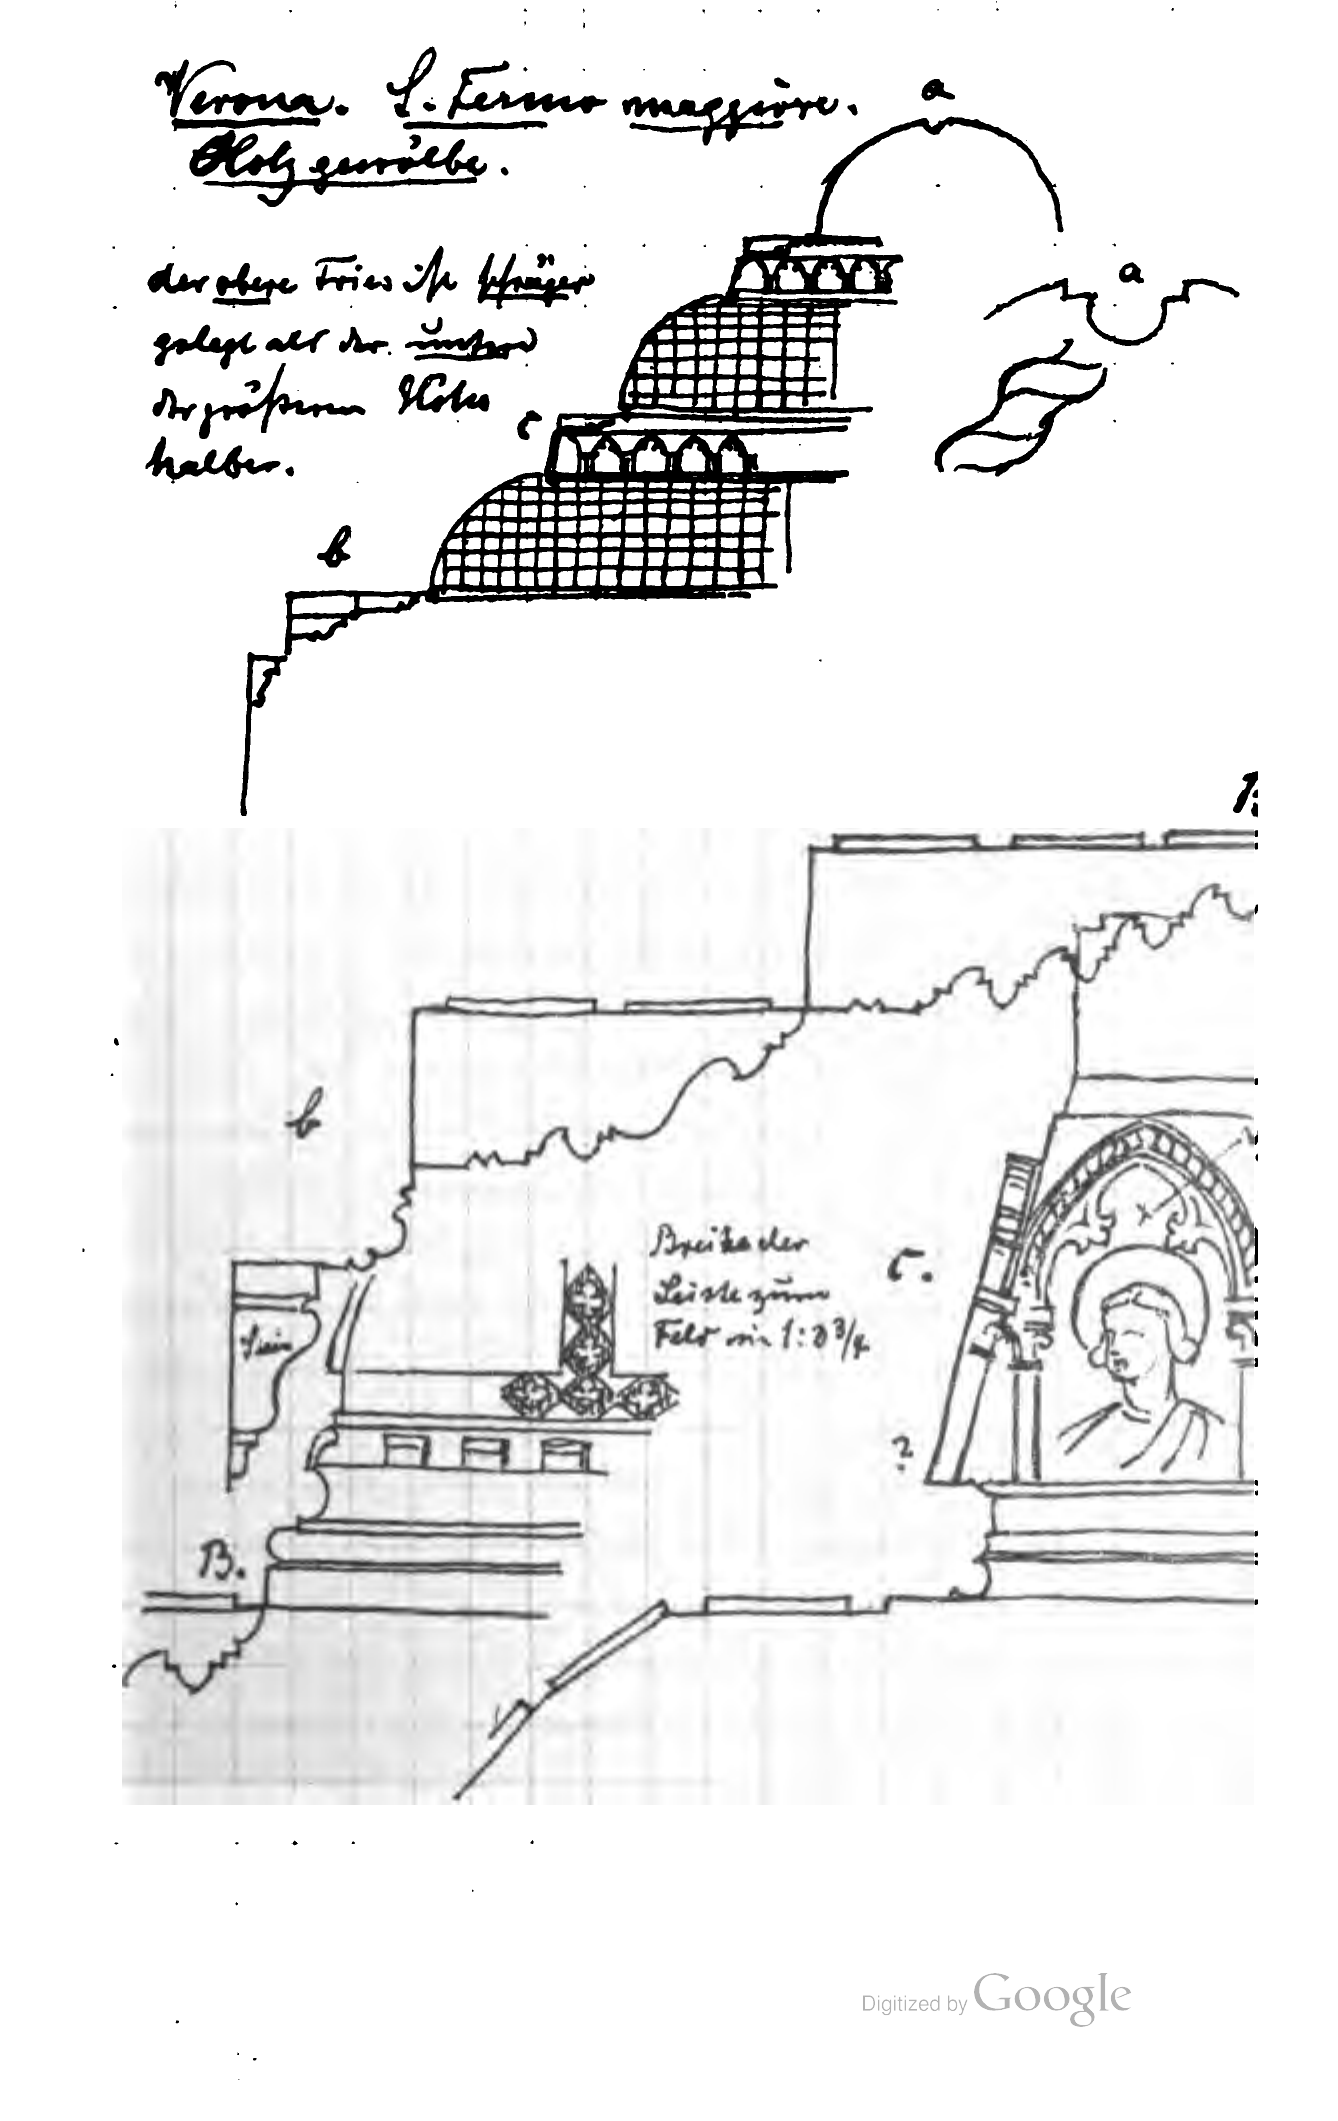 Verona. S. Fermo maggiore.
Holzgewölbe.
a
der obere Fries ist schräger
a
gelegt als der untere
der größeren Höhe
c
halber.
b
B
b
Breite der
Leiste zum
Feld wie 1:3 3/4
c.
Stein
?
B.
Digitized by Google